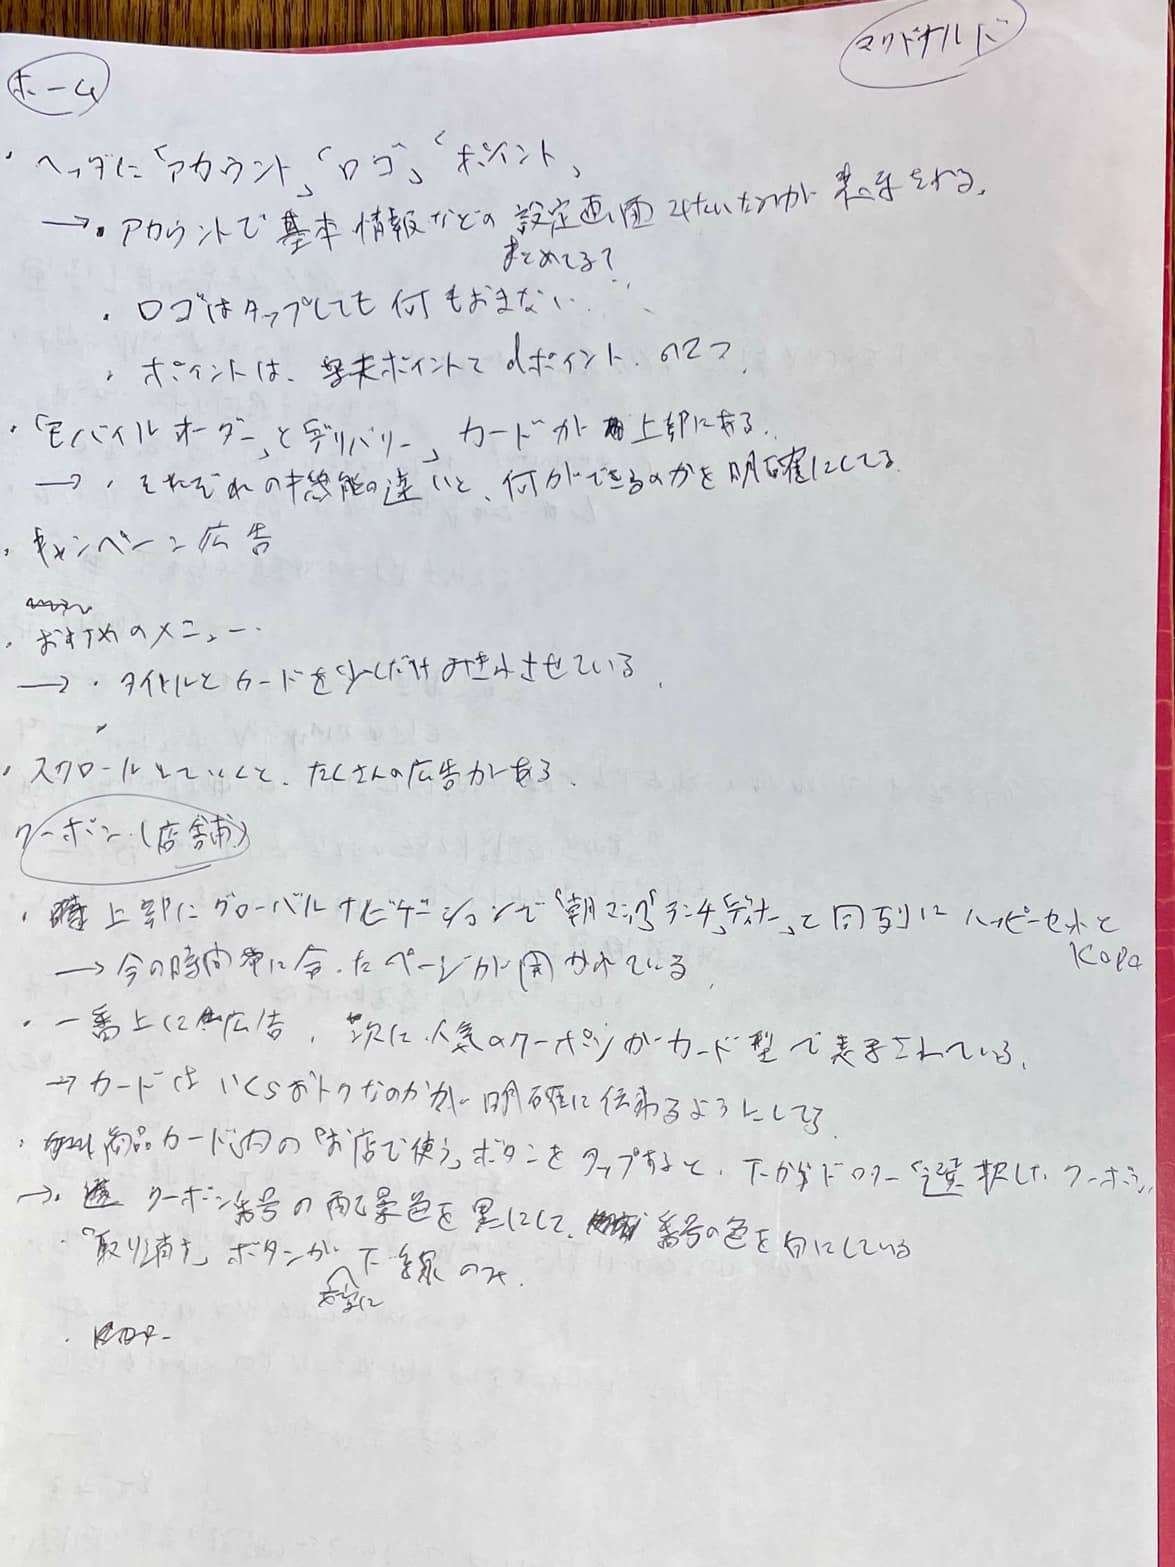 マクドナルド
ホーム
・ヘッダに「アカウント」「ロゴ」「ポイント」
→・アカウントで基本情報などの設定画面みたいなのが表示される。
まとめてる?
・ロゴはタップしても何もおきない.
・ポイントは、楽天ポイントとdポイントの2つ
・「モバイルオーダー」と「デリバリー」カードが上部にある.
→・それぞれの機能の違いと、何ができるのかを明確にしてる
・キャンペーン広告
・おすすめのメニュー.
→・タイトルとカードを少しだけみきれさせている.
・スクロールしていくと、たくさんの広告がある.
クーポン(店舗)
・上部にグローバルナビゲーションで「朝マック」「ランチ」「ディナー」と同列にハッピーセットと
KODO
→今の時間帯に合ったページが開かれている.
・一番上に広告, 次に人気のクーポンがカード型で表示されている.
→カードはいくらおトクなのかが明確に伝わるようにしてる
・商品カード内の「お店で使う」ボタンをタップすると、下からドロワー「選択したクーポン」
→・クーポン番号の配景色を黒にして、番号の色を白にしている
・「取り消す」ボタンが下線のみ.